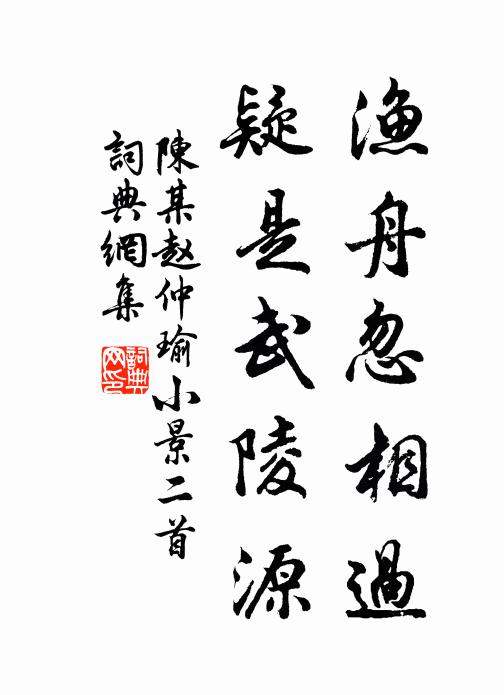 漁舟忽相過
疑是武陵源
陳某赵仲瑜小景二首
詞典網集
詞典网印